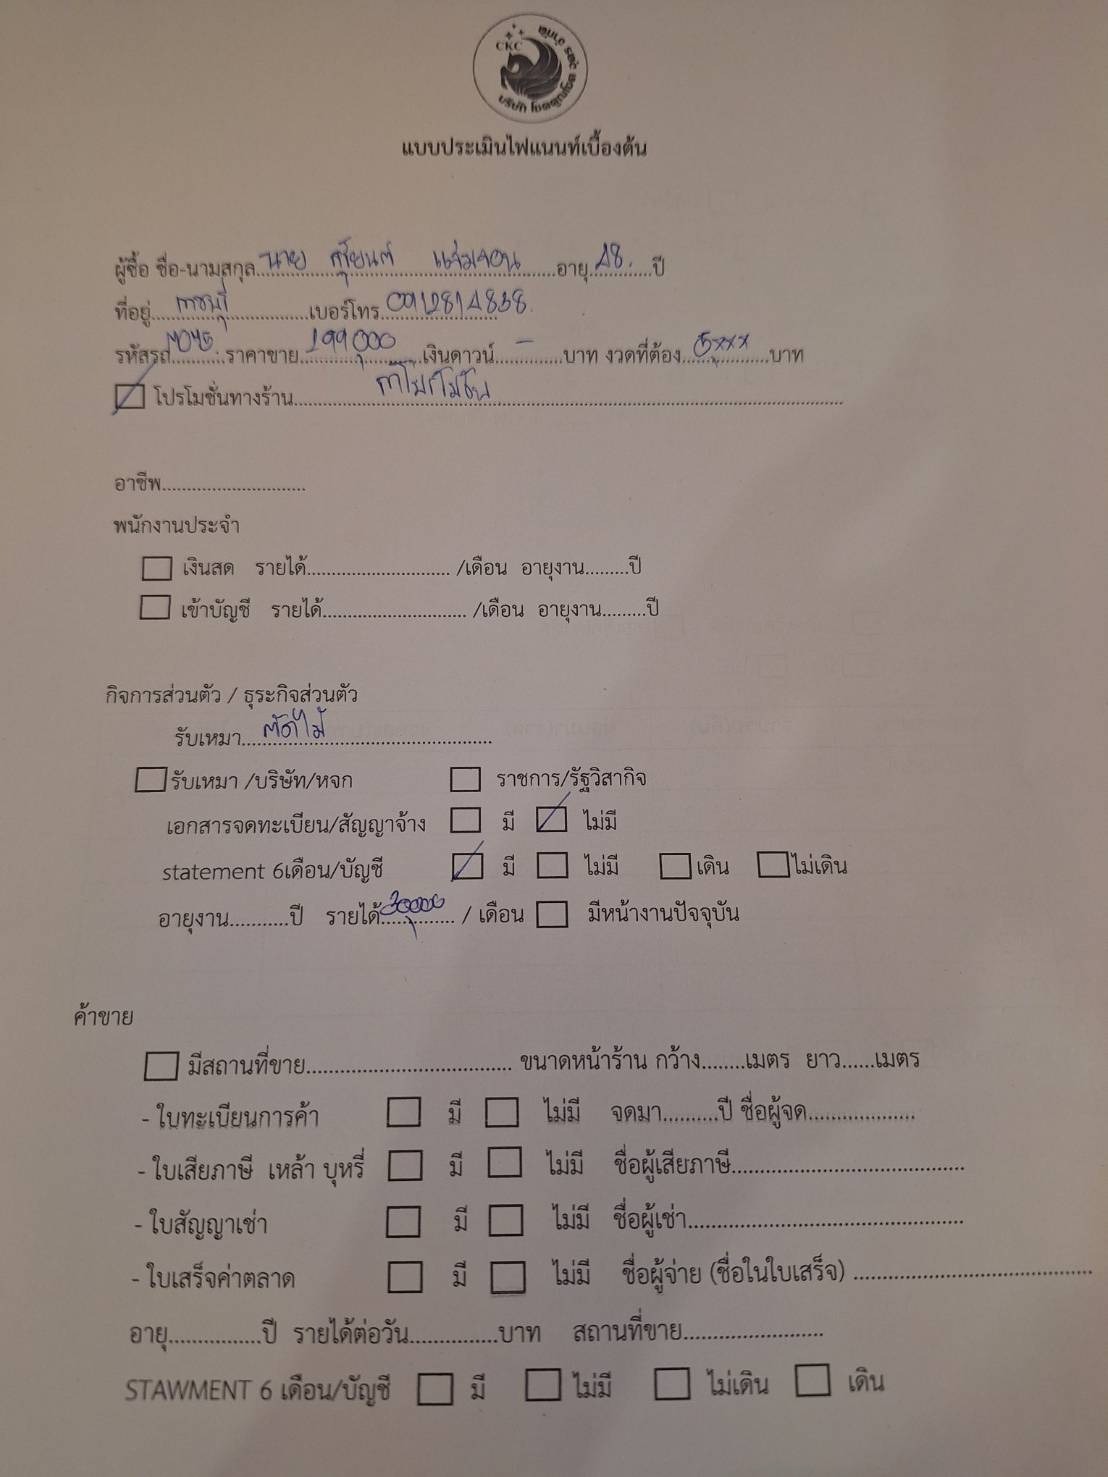 CKC
แบบประเมินไฟแนนท์เบื้องต้น
ผู้ซื้อ ชื่อ-นามสกุล..นาย สุริยนต์ แจ่มจอน..อายุ.48.ปี
ที่อยู่..........เบอร์โทร.0912814838
รหัสรถ..........ราคาขาย..199,000..เงินดาวน์..–..บาท งวดที่ต้อง..5xxx..บาท
โปรโมชั่นทางร้าน..........
อาชีพ..........
พนักงานประจำ
เงินสด รายได้........../เดือน อายุงาน.........ปี
เข้าบัญชี รายได้........../เดือน อายุงาน.........ปี
กิจการส่วนตัว / ธุระกิจส่วนตัว
รับเหมา..ตัดไม้..
รับเหมา /บริษัท/หจก ราชการ/รัฐวิสากิจ
เอกสารจดทะเบียน/สัญญาจ้าง มี ไม่มี
statement 6เดือน/บัญชี มี ไม่มี เดิน ไม่เดิน
อายุงาน..........ปี รายได้.30,000../ เดือน มีหน้างานปัจจุบัน
ค้าขาย
มีสถานที่ขาย.......... ขนาดหน้าร้าน กว้าง........เมตร ยาว......เมตร
- ใบทะเบียนการค้า มี ไม่มี จดมา..........ปี ชื่อผู้จด..........
- ใบเสียภาษี เหล้า บุหรี่ มี ไม่มี ชื่อผู้เสียภาษี..........
- ใบสัญญาเช่า มี ไม่มี ชื่อผู้เช่า..........
- ใบเสร็จค่าตลาด มี ไม่มี ชื่อผู้จ่าย (ชื่อในใบเสร็จ) ..........
อายุ..........ปี รายได้ต่อวัน..........บาท สถานที่ขาย..........
STAWMENT 6 เดือน/บัญชี มี ไม่มี ไม่เดิน เดิน